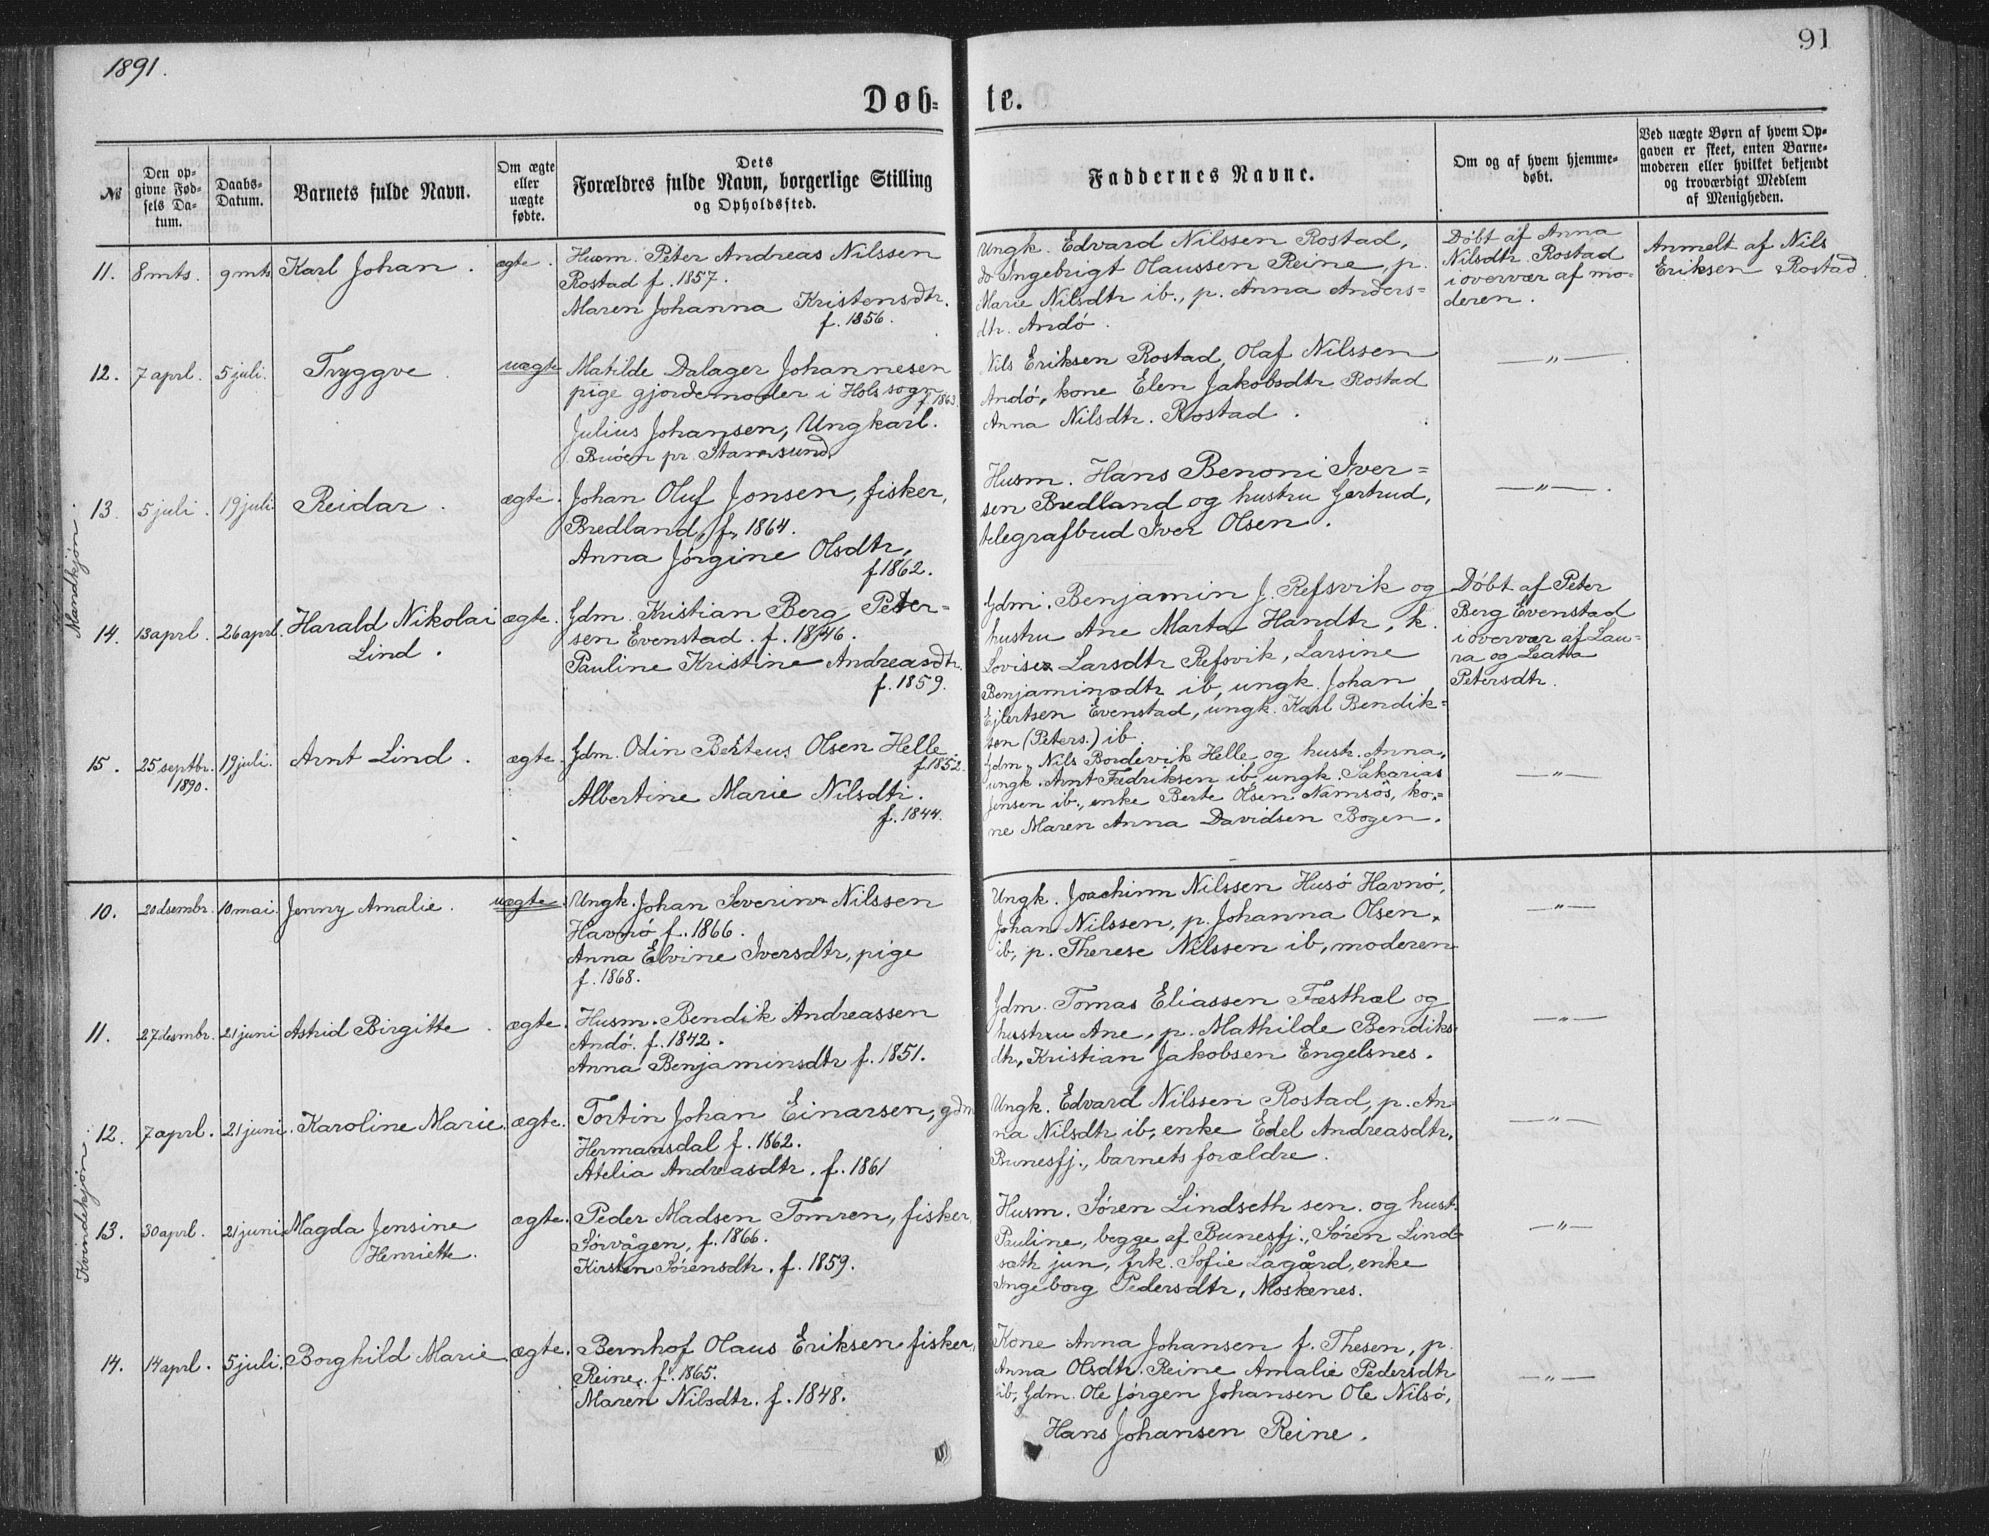 1891.
91
Døb=
te.
№
Den op=
givne Fød=
sels Da=
tum.
Daabs=
Datum.
Barnets fulde Navn.
Om ægte
eller
uægte
fødte.
Dets
Forældres fulde Navn, borgerlige Stilling
og Opholdssted.
Faddernes Navne.
Om og af hvem hjemme=
døbt.
Ved uægte Børn af hvem Op=
gaven er skeet, enten Barne=
moderen eller hvilket bekjendt
og troværdigt Medlem
af Menigheden.
Mandkjøn.
11. 8 mts. 9 mts Karl Johan. ægte.
Husm. Peter Andreas Nilssen
Rostad f. 1857.
Maren Johanna Kristensdtr.
f. 1856.
Ungk. Edvard Nilssen Rostad,
do Ingebrigt Olaussen Reine, p.
Marie Nilsdtr ib., p. Anna Anders=
dtr. Andö.
Döbt af Anna
Nilsdtr. Rostad
i overvær af mo=
deren.
Anmelt af Nils
Eriksen Rostad
12. 7 aprl. 5 juli. Tryggve uægte
Matilde Dalager Johannesen
pige gjordemoder i Hols sogn
f. 1863.
Julius Johansen, Ungkarl.
Buöen pr. Stamsund.
Nils Eriksen Rostad, Olaf Nilssen
Andö, kone Elen Jakobsdtr Rostad
Anna Nilsdtr. Rostad.
—"—
13. 5 juli. 19 juli Reidar. ægte.
Johan Oluf Jonsen, fisker,
Bredland, f. 1864.
Anna Jörgine Olsdtr,
f. 1862.
Husm. Hans Benoni Iver=
sen Bredland og hustru Gertrud,
telegrafbud Iver Olsen.
—"—.
14. 13 aprl. 26 aprl Harald Nikolai
Lind. ægte.
Gdm. Kristian Berg Peter=
sen Evenstad. f. 1846.
Pauline Kristine Andreasdtr.
f. 1859.
Gdm. Benjamin J. Refsvik og
hustru Ane Marta Handtr, k.
Lovise Larsdtr Refsvik, Larsine
Benjaminsdtr ib, ungk. Johan
Ejlertsen Evenstad, ungk. Karl Bendik=
sen (Peters.) ib.
Döbt af Peter
Berg Evenstad
i overvær af Lau=
ra og Leata
Petersdtr.
15. 25 septbr.
1890. 19 juli. Arnt Lind. ægte.
Gdm. Odin Berteus Olsen Helle
f. 1852.
Albertine Marie Nilsdtr.
f. 1844.
Gdm. Nils Bordevik Helle og hustr. Anna,
ungk. Arnt Fredriksen ib, ungk. Sakarias
Jensen ib., enke Berte Olsen Namsös, ko=
ne Maren Anna Davidsen Bogen.
—"—
Kvindekjøn.
10. 20 dsembr. 10 mai. Jenny Amalie. uægte.
Ungk. Johan Severin Nilssen
Havnö f. 1866.
Anna Elvine Iversdtr, pige
f. 1868.
Ungk. Joachim Nilssen Husö Havnö,
Johan Nilssen, p. Johanna Olsen
ib., p. Therese Nilssen ib, moderen
—"—
11. 27 desmbr. 21 juni Astrid Birgitte. ægte.
Husm. Bendik Andreassen
Andö. f. 1842.
Anna Benjaminsdtr f. 1851.
Gdm. Tomas Eliassen Fæsthæl og
hustru Ane, p. Mathilde Bendiks=
dtr, Kristian Jakobsen Engelsnes.
—"—
12. 7 aprl. 21 juni. Karoline Marie. ægte.
Tortin Johan Einarsen, gdm
Hermansdal f. 1862.
Atelia Andreasdtr. f. 1861
Ungk. Edvard Nilssen Rostad, p. An
na Nilsdtr ib, enke Edel Andreasdtr,
Bunesfj., barnets forældre.
—"—
13. 30 aprl. 21 juni Magda Jensine
Henriette. ægte.
Peder Madsen Tomren, fisker,
Sörvågen, f. 1866.
Kirsten Sörensdtr. f. 1859.
Husm. Sören Lindseth sen. og hust.
Pauline, begge af Bunesfj., Sören Lind=
sæth jun, frk. Sofie Lagård, enke
Ingeborg Pedersdtr, Moskenes.
—"—
14. 14 aprl. 5 juli. Borghild Marie ægte.
Bernhof Olaus Eriksen fisker,
Reine. f. 1865.
Maren Nilsdtr. f. 1848.
Kone Anna Johansen f. Thesen, p.
Anna Olsdtr. Reine Amalie Pedersdtr
ib, Gdm. Ole Jörgen Johansen Ole Nilsö,
Hans Johansen Reine.
—"—